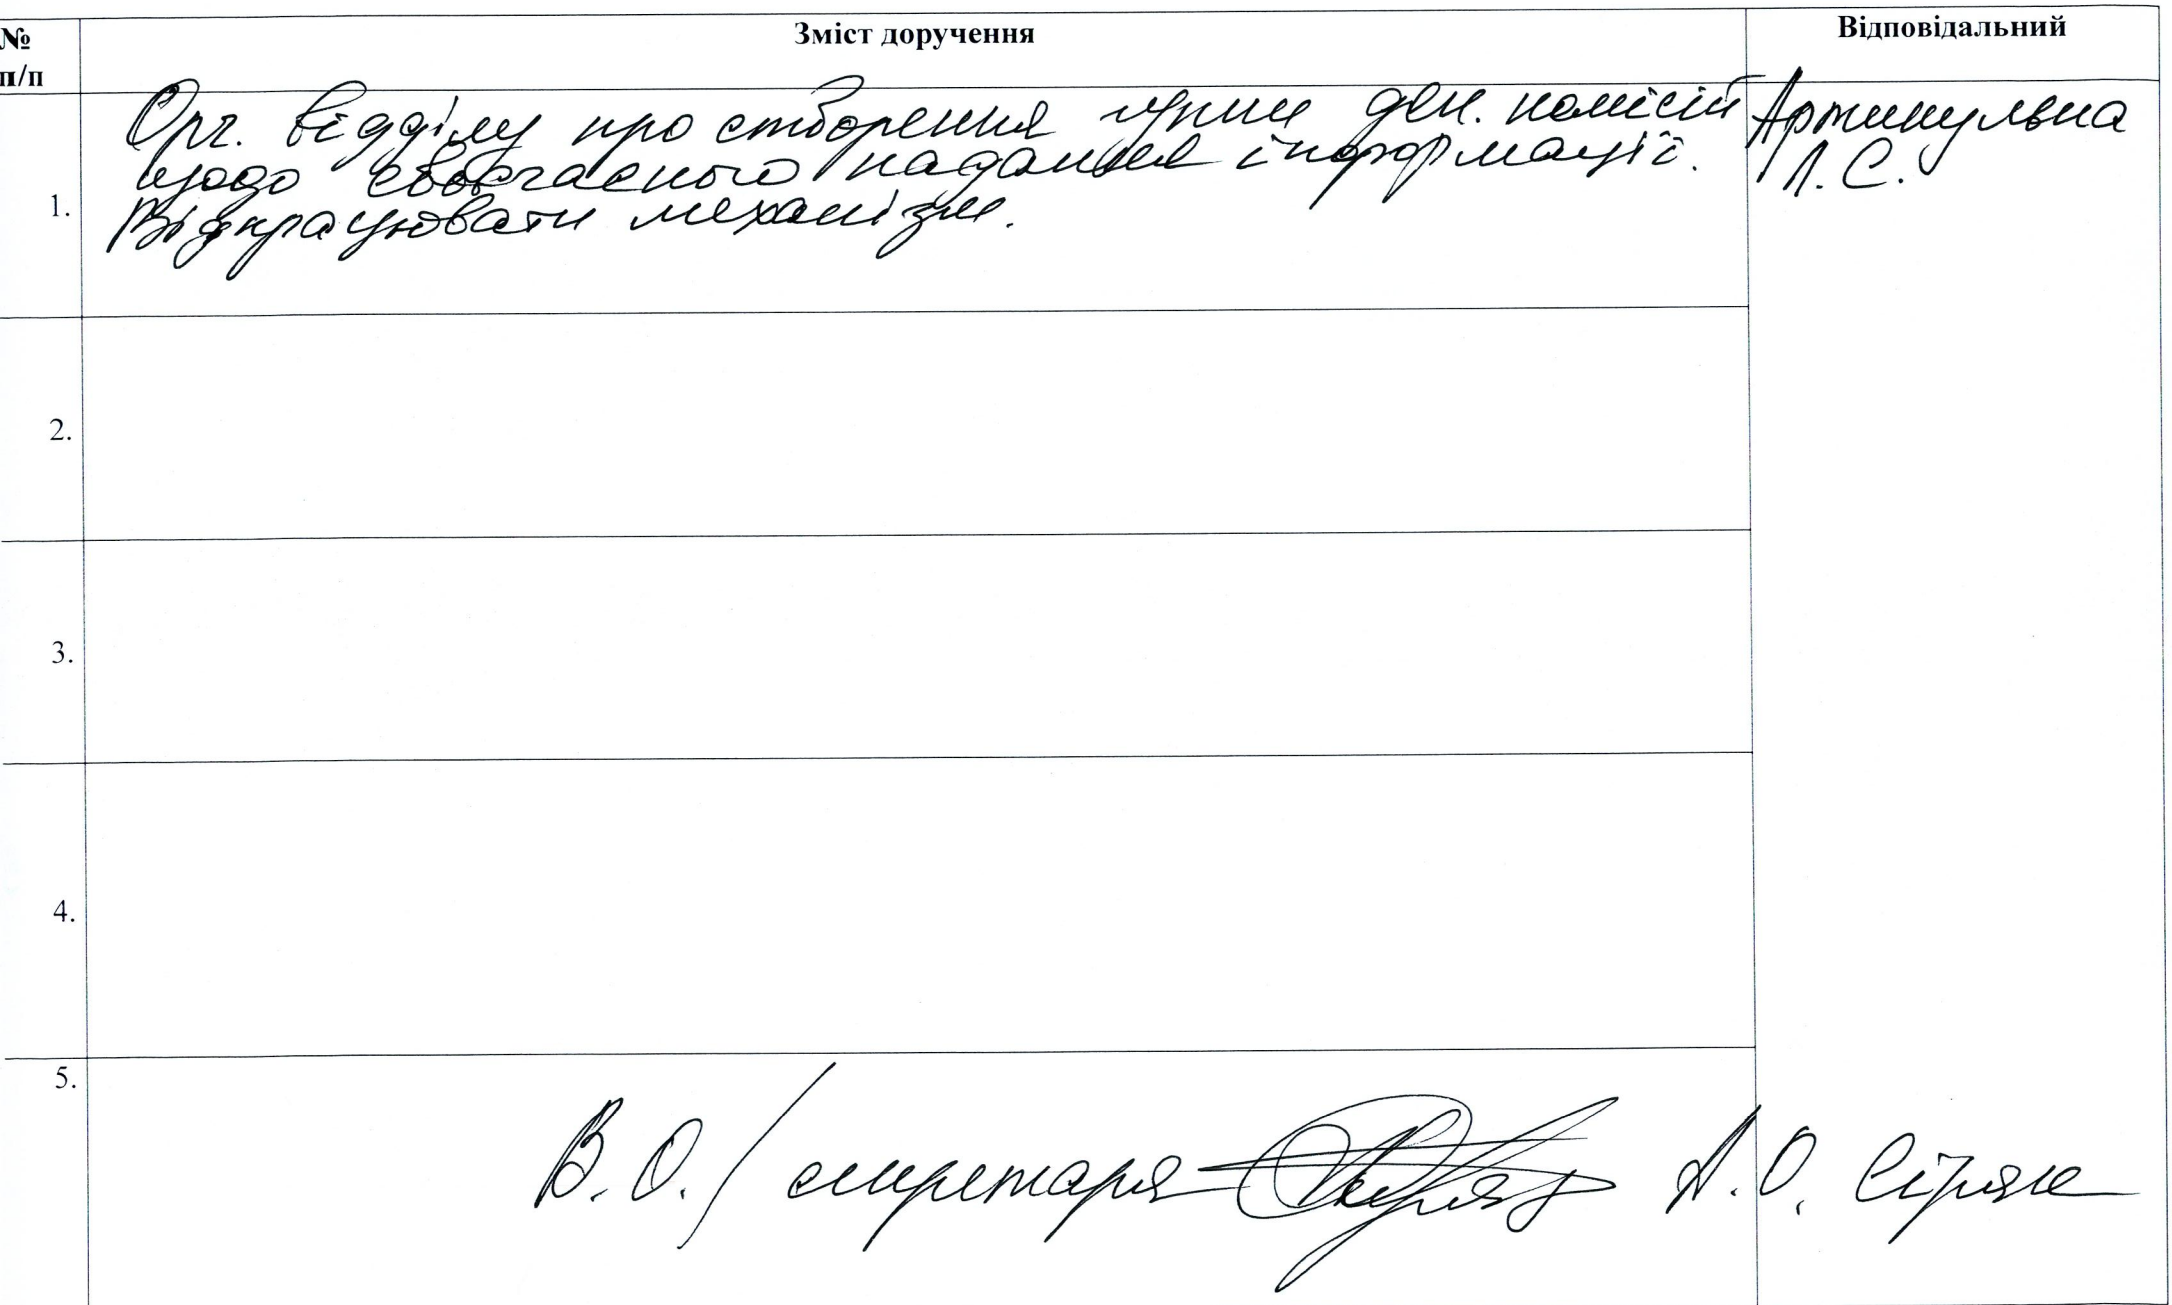 № п/п
Зміст доручення
Відповідальний
1.
Орг. відділу про створення групи деп. комісій
щодо своєчасного надання інформації.
Відпрацювати механізм.
Л.С.
2.
3.
4.
5.
В.О./ секретаря А.О. Сіряк